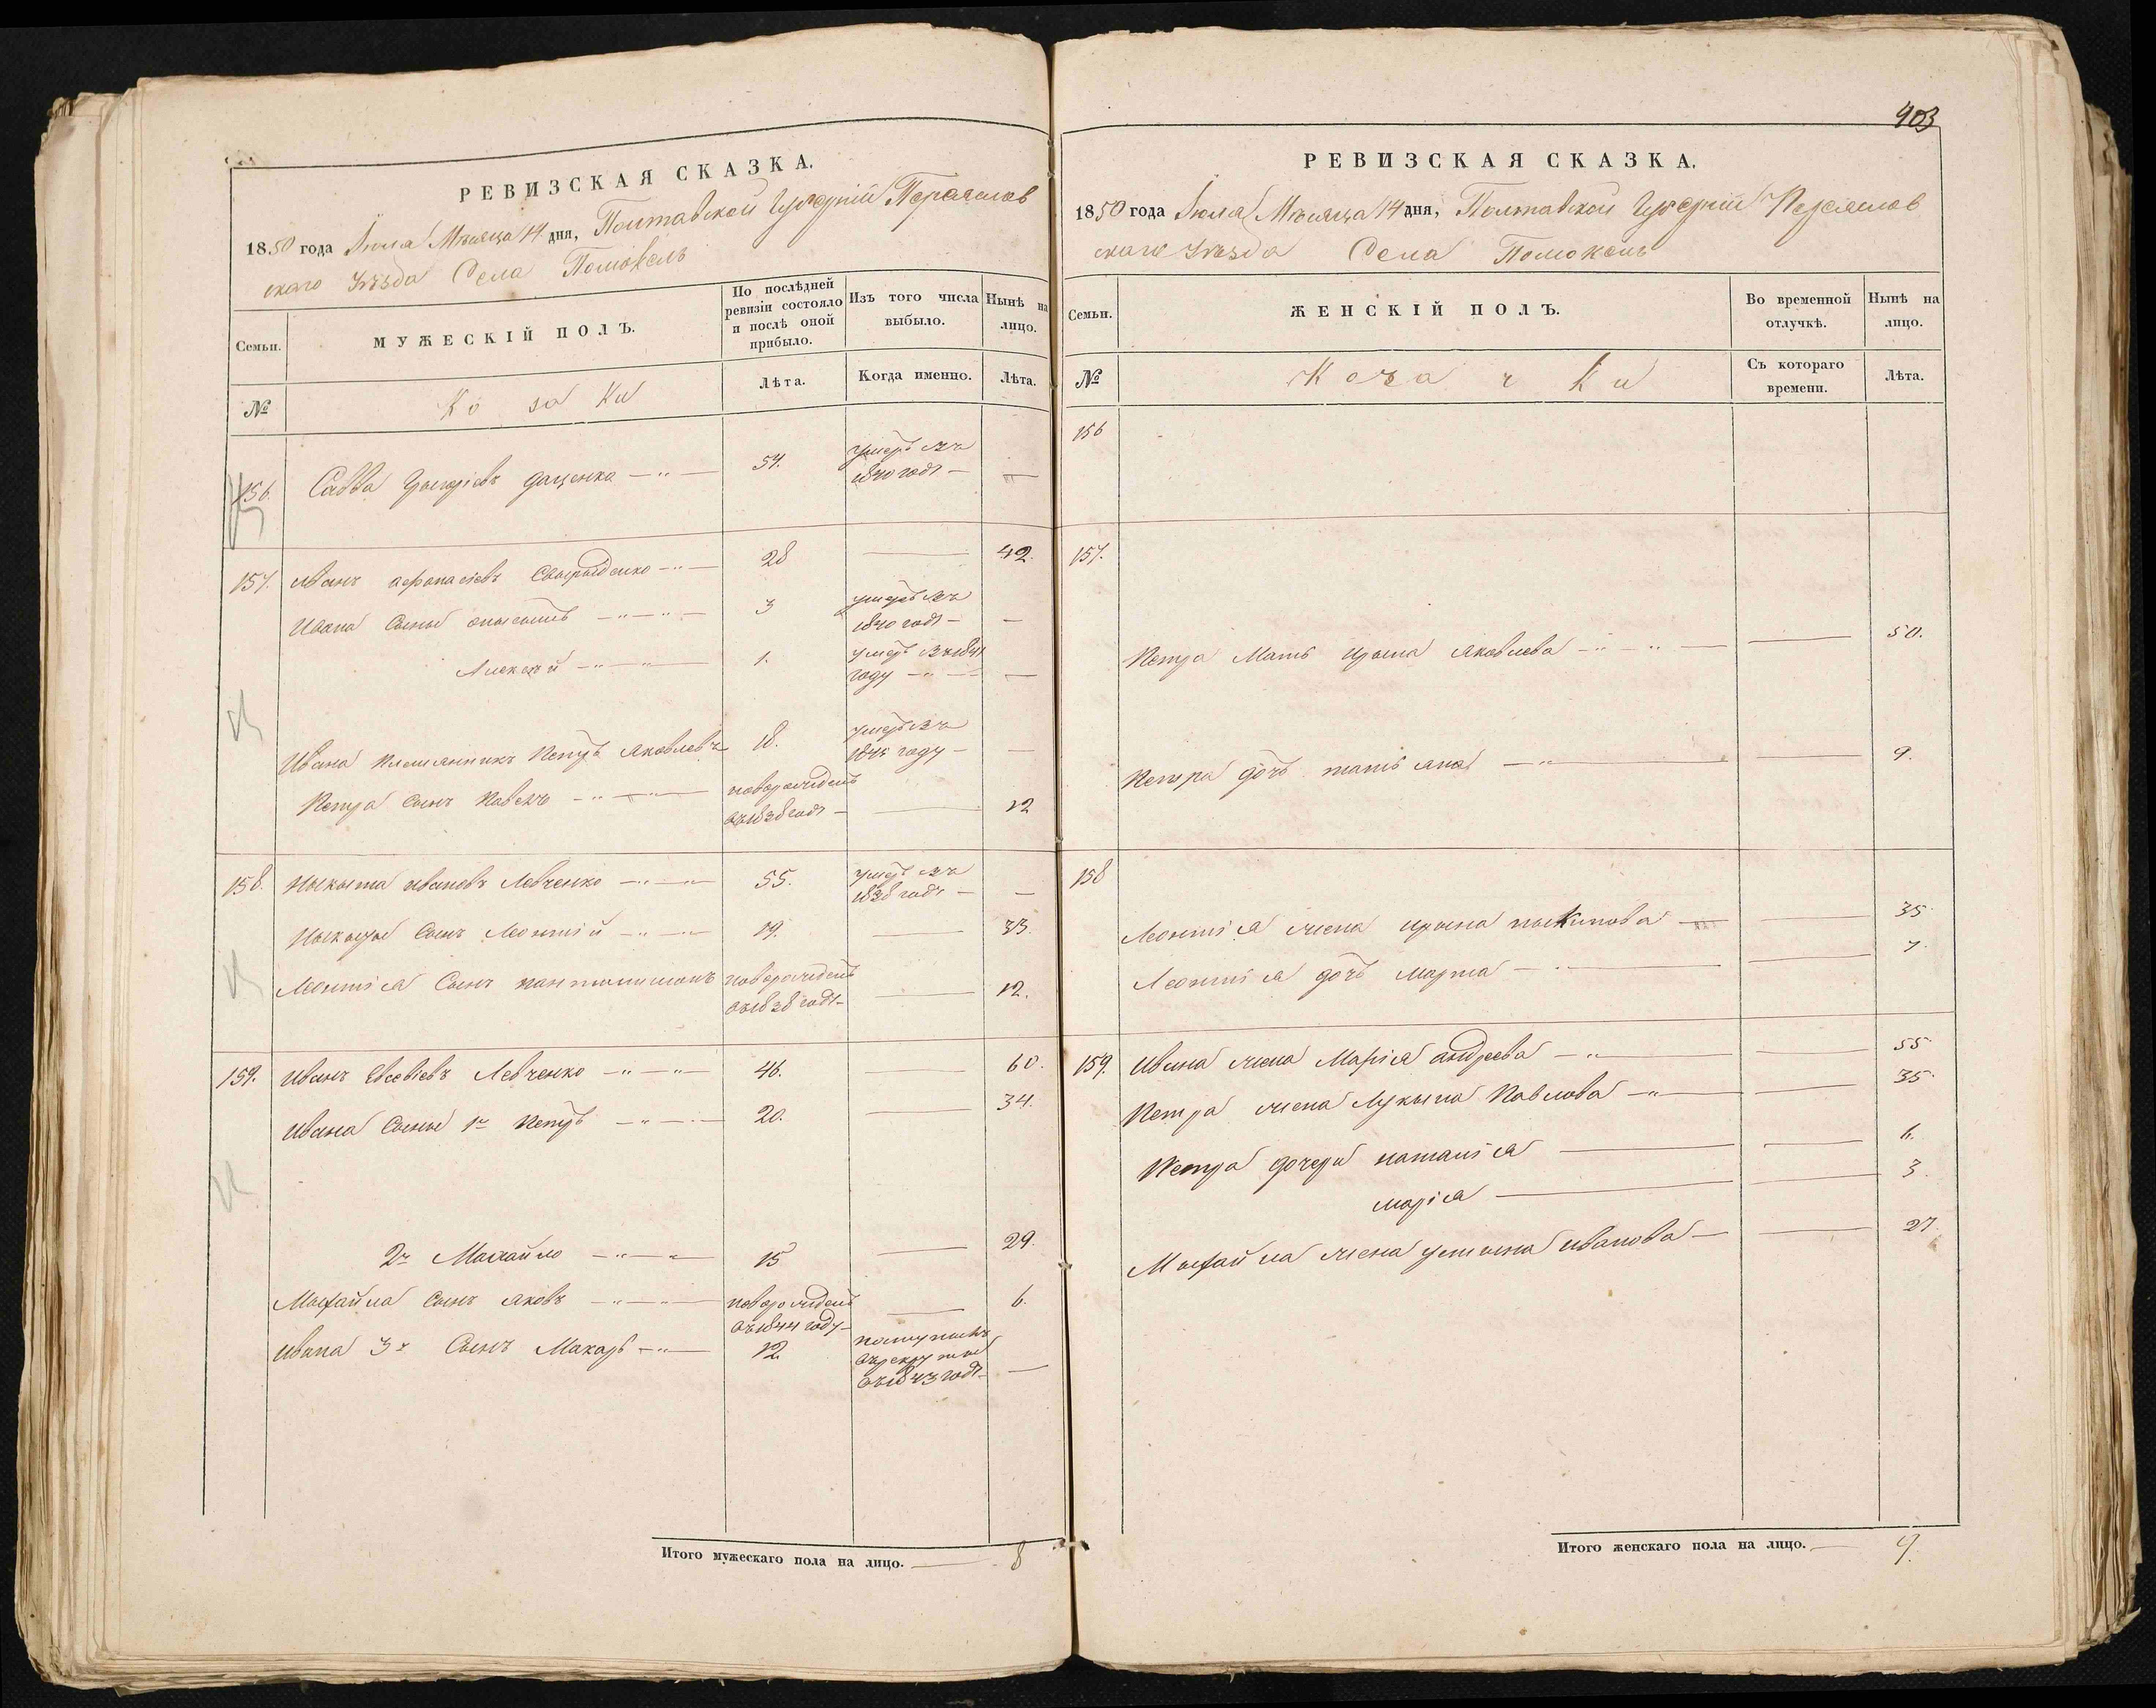 РЕВИЗСКАЯ СКАЗКА.
1850 года Июля Мѣсяца 14 дня, Полтавской Губерніи Переяслов
скаго Уѣзда Села Помоклъ
Семьи.
МУЖЕСКІЙ ПОЛЪ.
По послѣдней ревизіи состояло и послѣ оной прибыло.
Изъ того числа выбыло.
Нынѣ на лицо.
№
Козаки
Лѣта.
Когда именно.
Лѣта.
156. Савва Григоріевъ Даценко — 54. умеръ въ
1840 годѣ — —
157. Иванъ Афанасіевъ Свириденко — 28 — 42.
Ивана Сыны — 3 умеръ въ
1840 годѣ — —
Алексей — 1. умеръ въ 1841
году — —
Ивана племянникъ Петръ Яковлевъ 18. умеръ въ
1845 году — —
Петра Сынъ Павелъ — новорожденъ
въ 1838 годѣ — — 12
158. Ныкыта Ивановъ Левченко — 55. умеръ въ
1838 годѣ — —
Ныкыты Сынъ Леонтій — 19. — 33.
Леонтія Сынъ пантилимонъ новорожденъ
въ 1838 годѣ — — 12.
159. Иванъ Евсевіевъ Левченко — 46. — 60.
Ивана Сыны 1й Петръ — 20. — 34.
2й Михайло — 15 — 29.
Михайла Сынъ Яковъ — новорожденъ — 6.
въ 1844 году —
Ивана 3й Сынъ Макаръ — 12
въ рекруты
въ 1843 годѣ — —
Итого мужескаго пола на лицо. — 8
903
РЕВИЗСКАЯ СКАЗКА.
1850 года Июля Мѣсяца 14 дня, Полтавской Губерніи Переяслов
скаго Уѣзда Села Помоклъ
Семьи.
ЖЕНСКІЙ ПОЛЪ.
Во временной отлучкѣ.
Нынѣ на лицо.
№
Козачки
Съ котораго времени.
Лѣта.
156
157.
Петра Мать Ирина Яковлева — — 50.
Петра дочь татіяна — — 9.
158
Леонтія жена Ирина — 35.
Леонтія дочь Марта — — 7.
159. Ивана жена Марія андреева — — 55.
Петра жена Лукіна Павлова — — 35.
Петра дочери наталія — — 6.
марія — — 3.
Михайла жена устина иванова — — 27.
Итого женскаго пола на лицо. — 9.